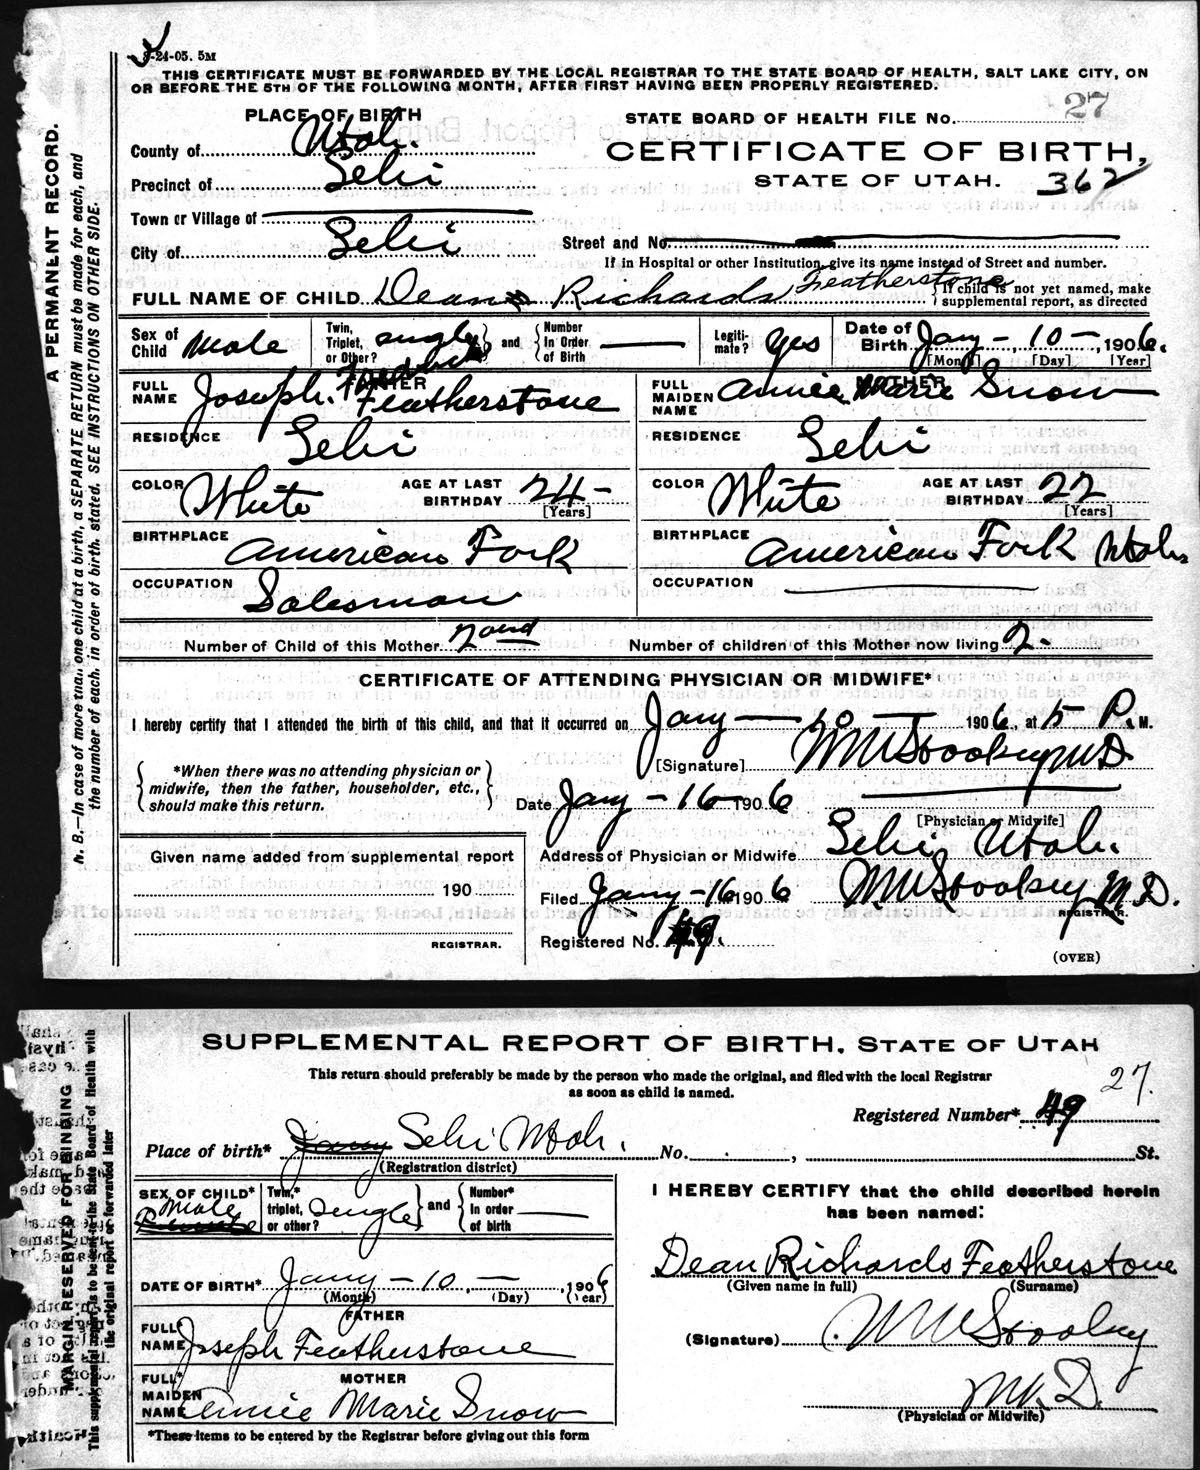 8-24-05. 5M
THIS CERTIFICATE MUST BE FORWARDED BY THE LOCAL REGISTRAR TO THE STATE BOARD OF HEALTH, SALT LAKE CITY, ON
OR BEFORE THE 5TH OF THE FOLLOWING MONTH, AFTER FIRST HAVING BEEN PROPERLY REGISTERED.
A PERMANENT RECORD.
N. B.—In case of more than one child at a birth, a SEPARATE RETURN must be made for each, and
the number of each, in order of birth, stated. SEE INSTRUCTIONS ON OTHER SIDE.
PLACE OF BIRTH
County of Utah.
Precinct of Lehi
Town or Village of
City of Lehi
STATE BOARD OF HEALTH FILE No. 27
CERTIFICATE OF BIRTH,
STATE OF UTAH. 362
Street and No.
If in Hospital or other Institution, give its name instead of Street and number.
FULL NAME OF CHILD Dean Richards Featherstone { If child is not yet named, make
supplemental report, as directed
Sex of Child Male
Twin, Triplet, or Other? single } and { Number In Order of Birth
Legiti-mate? Yes
Date of Birth Jany - 10 -, 1906.
[Month] [Day] [Year]
FATHER
FULL NAME Joseph. Featherstone
RESIDENCE Lehi
COLOR White AGE AT LAST BIRTHDAY 24 -
[Years]
BIRTHPLACE American Fork
OCCUPATION Salesman
MOTHER
FULL MAIDEN NAME Annie Marie Snow
RESIDENCE Lehi
COLOR White AGE AT LAST BIRTHDAY 22
[Years]
BIRTHPLACE American Fork Utah
OCCUPATION
Number of Child of this Mother 2ond Number of children of this Mother now living 2-
CERTIFICATE OF ATTENDING PHYSICIAN OR MIDWIFE*
I hereby certify that I attended the birth of this child, and that it occurred on Jany — 10 — 1906, at 5 P. M.
{ *When there was no attending physician or
midwife, then the father, householder, etc.,
should make this return. }
[Signature] M. D.
Date Jany - 16 - 1906
[Physician or Midwife]
Given name added from supplemental report
190
REGISTRAR.
Address of Physician or Midwife Lehi Utah.
Filed Jany - 16 1906 M. D.
REGISTRAR.
Registered No. 49.
(OVER)
MARGIN RESERVED FOR BINDING
This supplemental report is to be sent to the State Board of Health with
the original report or forwarded later
SUPPLEMENTAL REPORT OF BIRTH, STATE OF UTAH
This return should preferably be made by the person who made the original, and filed with the local Registrar
as soon as child is named.
27.
Registered Number* 49
Place of birth* Jany Lehi Utah. No. , St.
(Registration district)
SEX OF CHILD* Male
Twin,* triplet, or other? single } and { Number* In order of birth
DATE OF BIRTH* Jany - 10 - , 1906
(Month) (Day) (Year)
FATHER
FULL* NAME Joseph Featherstone
MOTHER
FULL* MAIDEN NAME Annie Marie Snow
*These items to be entered by the Registrar before giving out this form
I HEREBY CERTIFY that the child described herein
has been named:
Dean Richards Featherstone
(Given name in full) (Surname)
(Signature)
M. D.
(Physician or Midwife)